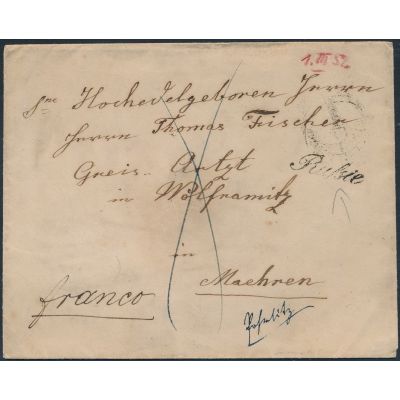 1. III 52
Sne Hochedelgeboren Herrn
Herrn Thomas Fischer
Greis.. Artzt
in Wolframitz
Rußie
in
Maehren
franco
Pohrlitz